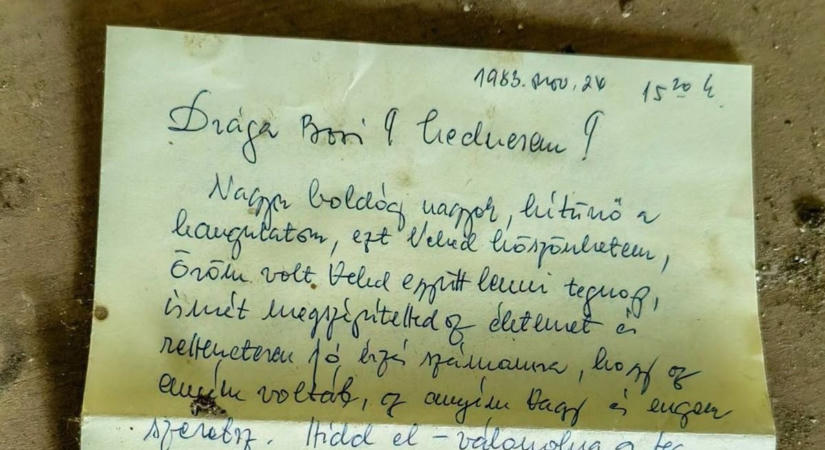 1983. nov. 24 15 20 h.
Drága Bori! Kedvesem!
Nagyon boldog vagyok, kitünő a
hangulatom, ezt Neked köszönhetem,
Öröm volt Veled együtt lenni tegnap,
ismét megszépítetted az életemet és
rettenetesen jó érzés számomra, hogy az
enyém voltál, az enyém vagy és engem
szeretsz. Hidd el - válaholva a